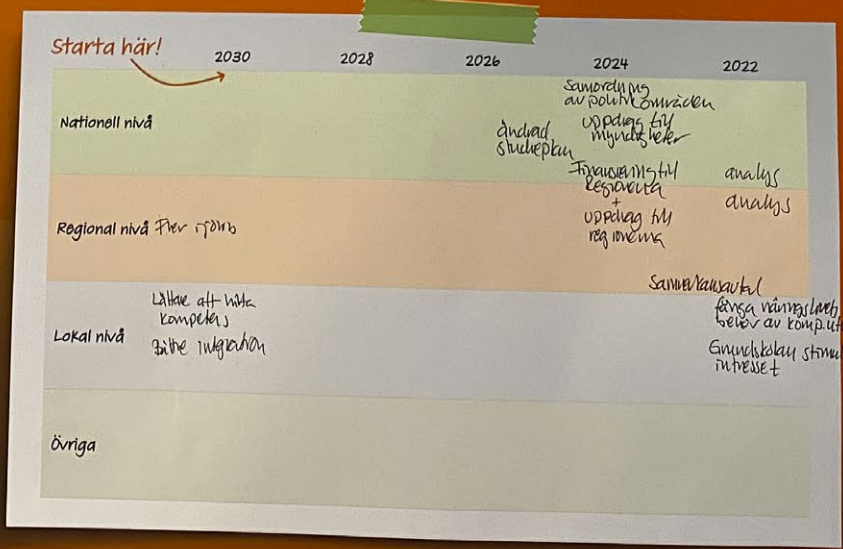 Starta här!
2030 2028 2026 2024 2022
Nationell nivå
ändrad
studieplan
Samordning
av politikområden
uppdrag till
myndigheter
Finansiering till
Regionerna
+
uppdrag till
regionerna
analys
Regional nivå Fler i jobb
analys
Samverkansavtal
Lokal nivå
Lättare att hitta
kompetens
Bättre integration
fånga näringslivets
behov av komp.ut
Grundskolan stimul
intresset
Övriga